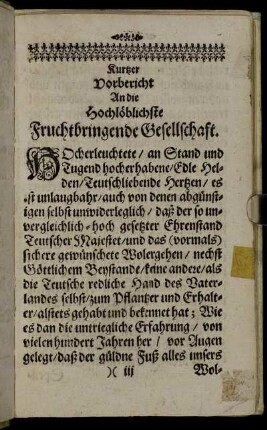 Kurtzer
Vorbericht
An die
Hochlöblichste
Fruchtbringende Gesellschaft.
HOcherleuchtete / an Stand und
Tugend hocherhabene / Edle Hel-
den / Teutschliebende Hertzen / es
ist unlaugbahr / auch von denen abgünst-
igen selbst unwiderleglich / daß der so un-
vergleichlich-hoch gesetzter Ehrenstand
Teutscher Majestet / und das (vormals)
sichere gewünschete Wolergehen / nechst
Göttlichem Beystande / keine andere / als
die Teutsche redliche Hand des Vater-
landes selbst / zum Pflantzer und Erhalt-
er / alstets gehabt und bekennet hat; Wie
es dan die untriegliche Erfahrung / von
vielen hundert Jahren her / vor Augen
gelegt / daß der güldne Fuß alles unsers
)( iij Wol-